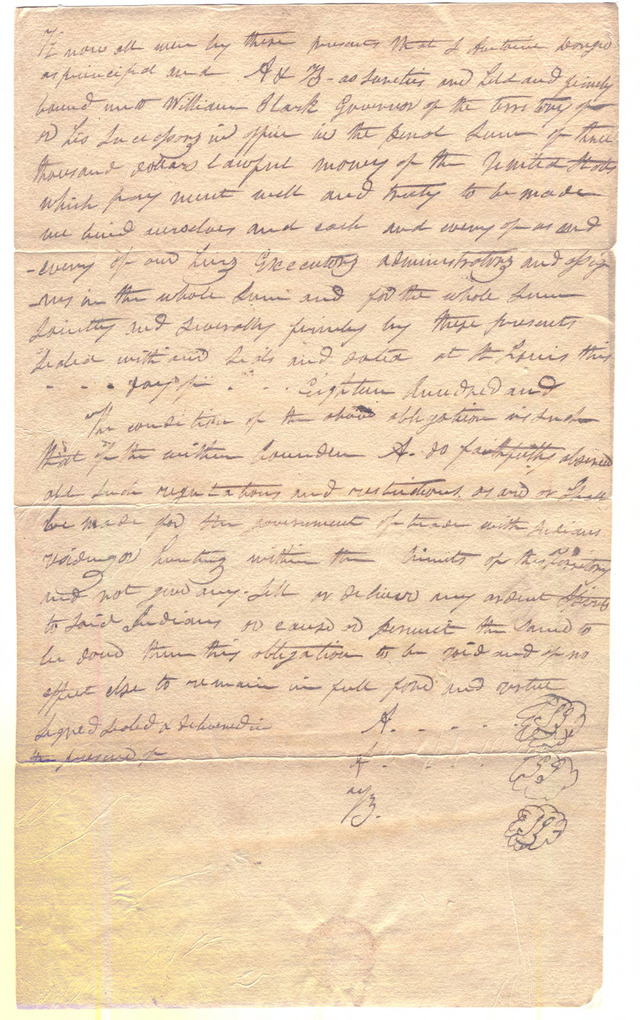 Know all men by these presents that I Antoine
as principal and A & B - as Sureties and held and firmly
bound unto William Clark Governor of the territory of
or his Successors in office in the penal Sum of three
thousand dollars lawful money of the United States
which payment well and truly to be made
we bind ourselves and each and every of us and
every of our heirs Executors administrators and assig
-ns in the whole Sum and for the whole Sum
Jointly and severally firmly by these presents
Sealed with our Seals and dated at St Louis this
- - - day of - - - Eighteen hundred and
The condition of the above obligation is such
that if the within bounden A. do faithfully observe
all such regulations and restrictions as are or shall
be made for the government of trade with Indians
residing or hunting within the limits of the Territory
and not give any - sell or deliver any ardent Spirits
to said Indians or cause or permit the same to
be done then this obligation to be void and of no
effect else to remain in full force and virtue
Signed Sealed & delivered in A. - - -
the presence of
B.